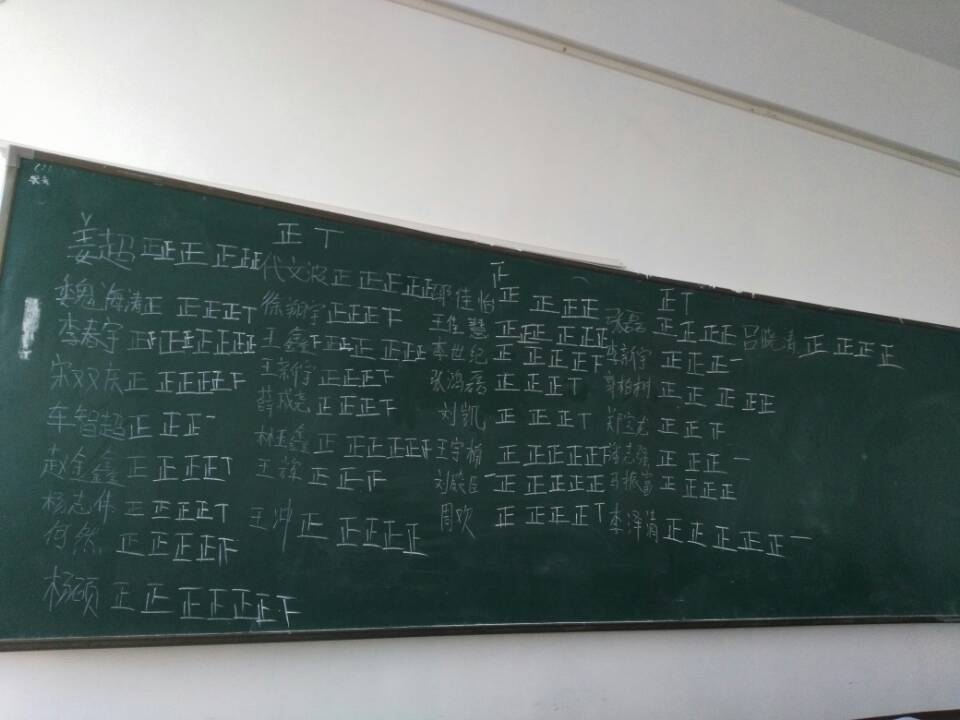 正丅
姜超 正正正 正正正
代文波 正 正正正正正
正
邓佳怡 正 正正正
正丅
魏海涛 正 正正正丅
徐翔宇 正正正下
王佳慧 正正正正正正
张磊 正正正正
吕晓涛 正 正正正
李春宇 正正正正正正正
王鑫
李世纪 正 正正正下
李新宇 正正正一
宋双庆 正 正正正正下
王新宇 正正正下
张鸿磊 正正正丅
正正正正正
车智超 正 正正一
薛成尧 正正正下
刘凯 正正正丅
正正下
赵金鑫 正正正正丅
林孟鑫 正 正正正正下
王宇楠 正正正正正下
正正正一
杨志伟 正正正正丅
王禄 正正下
正正正正正
正正正正
何然 正正正正
王冲 正 正正正正
周欢 正 正正正丅
李泽清 正正正正正一
杨硕 正正 正正正正下